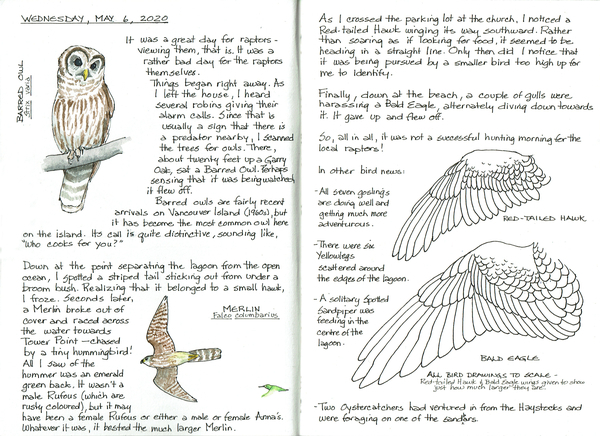 WEDNESDAY, MAY 6, 2020
It was a great day for raptors -
viewing them, that is. It was a
rather bad day for the raptors
themselves.
Things began right away. As
I left the house, I heard
several robins giving their
alarm calls. Since that is
usually a sign that there is
a predator nearby, I scanned
the trees for owls. There,
about twenty feet up a Garry
Oak, sat a Barred Owl. Perhaps
sensing that it was being watched,
it flew off.
Barred owls are fairly recent
arrivals on Vancouver Island (1960s), but
it has become the most common owl here
on the island. Its call is quite distinctive, sounding like,
"Who cooks for you?"
BARRED OWL
Strix varia
Down at the point separating the lagoon from the open
ocean, I spotted a striped tail sticking out from under a
broom bush. Realizing that it belonged to a small hawk,
I froze. Seconds later,
a Merlin broke out of
cover and raced across
the water towards
Tower Point - chased
by a tiny hummingbird!
All I saw of the
hummer was an emerald
green back. It wasn't a
male Rufous (which are
rusty coloured), but it may
have been a female Rufous or either a male or female Anna's.
Whatever it was, it bested the much larger Merlin.
MERLIN
Falco columbarius
As I crossed the parking lot at the church, I noticed a
Red-tailed Hawk winging its way southward. Rather
than soaring as if looking for food, it seemed to be
heading in a straight line. Only then did I notice that
it was being pursued by a smaller bird too high up for
me to identify.
Finally, down at the beach, a couple of gulls were
harassing a Bald Eagle, alternately diving down towards
it. It gave up and flew off.
So, all in all, it was not a successful hunting morning for the
local raptors!
In other bird news:
- All seven goslings
are doing well and
getting much more
adventurous.
- There were six
Yellowlegs
scattered around
the edges of the lagoon.
- A solitary Spotted
Sandpiper was
feeding in the
centre of the
lagoon.
RED-TAILED HAWK
BALD EAGLE
ALL BIRD DRAWINGS TO SCALE -
Red-tailed Hawk & Bald Eagle wings given to show
just how much larger they are.
- Two Oystercatchers had ventured in from the Haystocks and
were foraging on one of the sandbars.